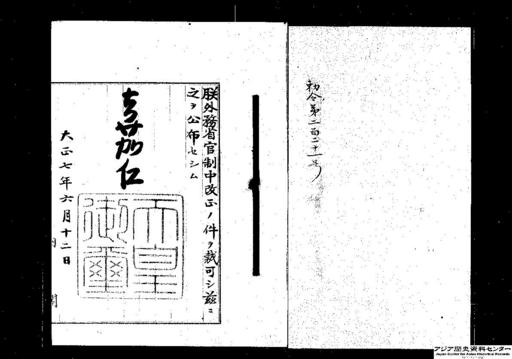 勅令第二百二十一号
朕外務省官制中改正ノ件ヲ裁可シ茲ニ
之ヲ公布セシム
嘉仁
天皇
御璽
大正七年六月十二日
内閣
アジア歴史資料センター
Japan Center for Asian Historical Records